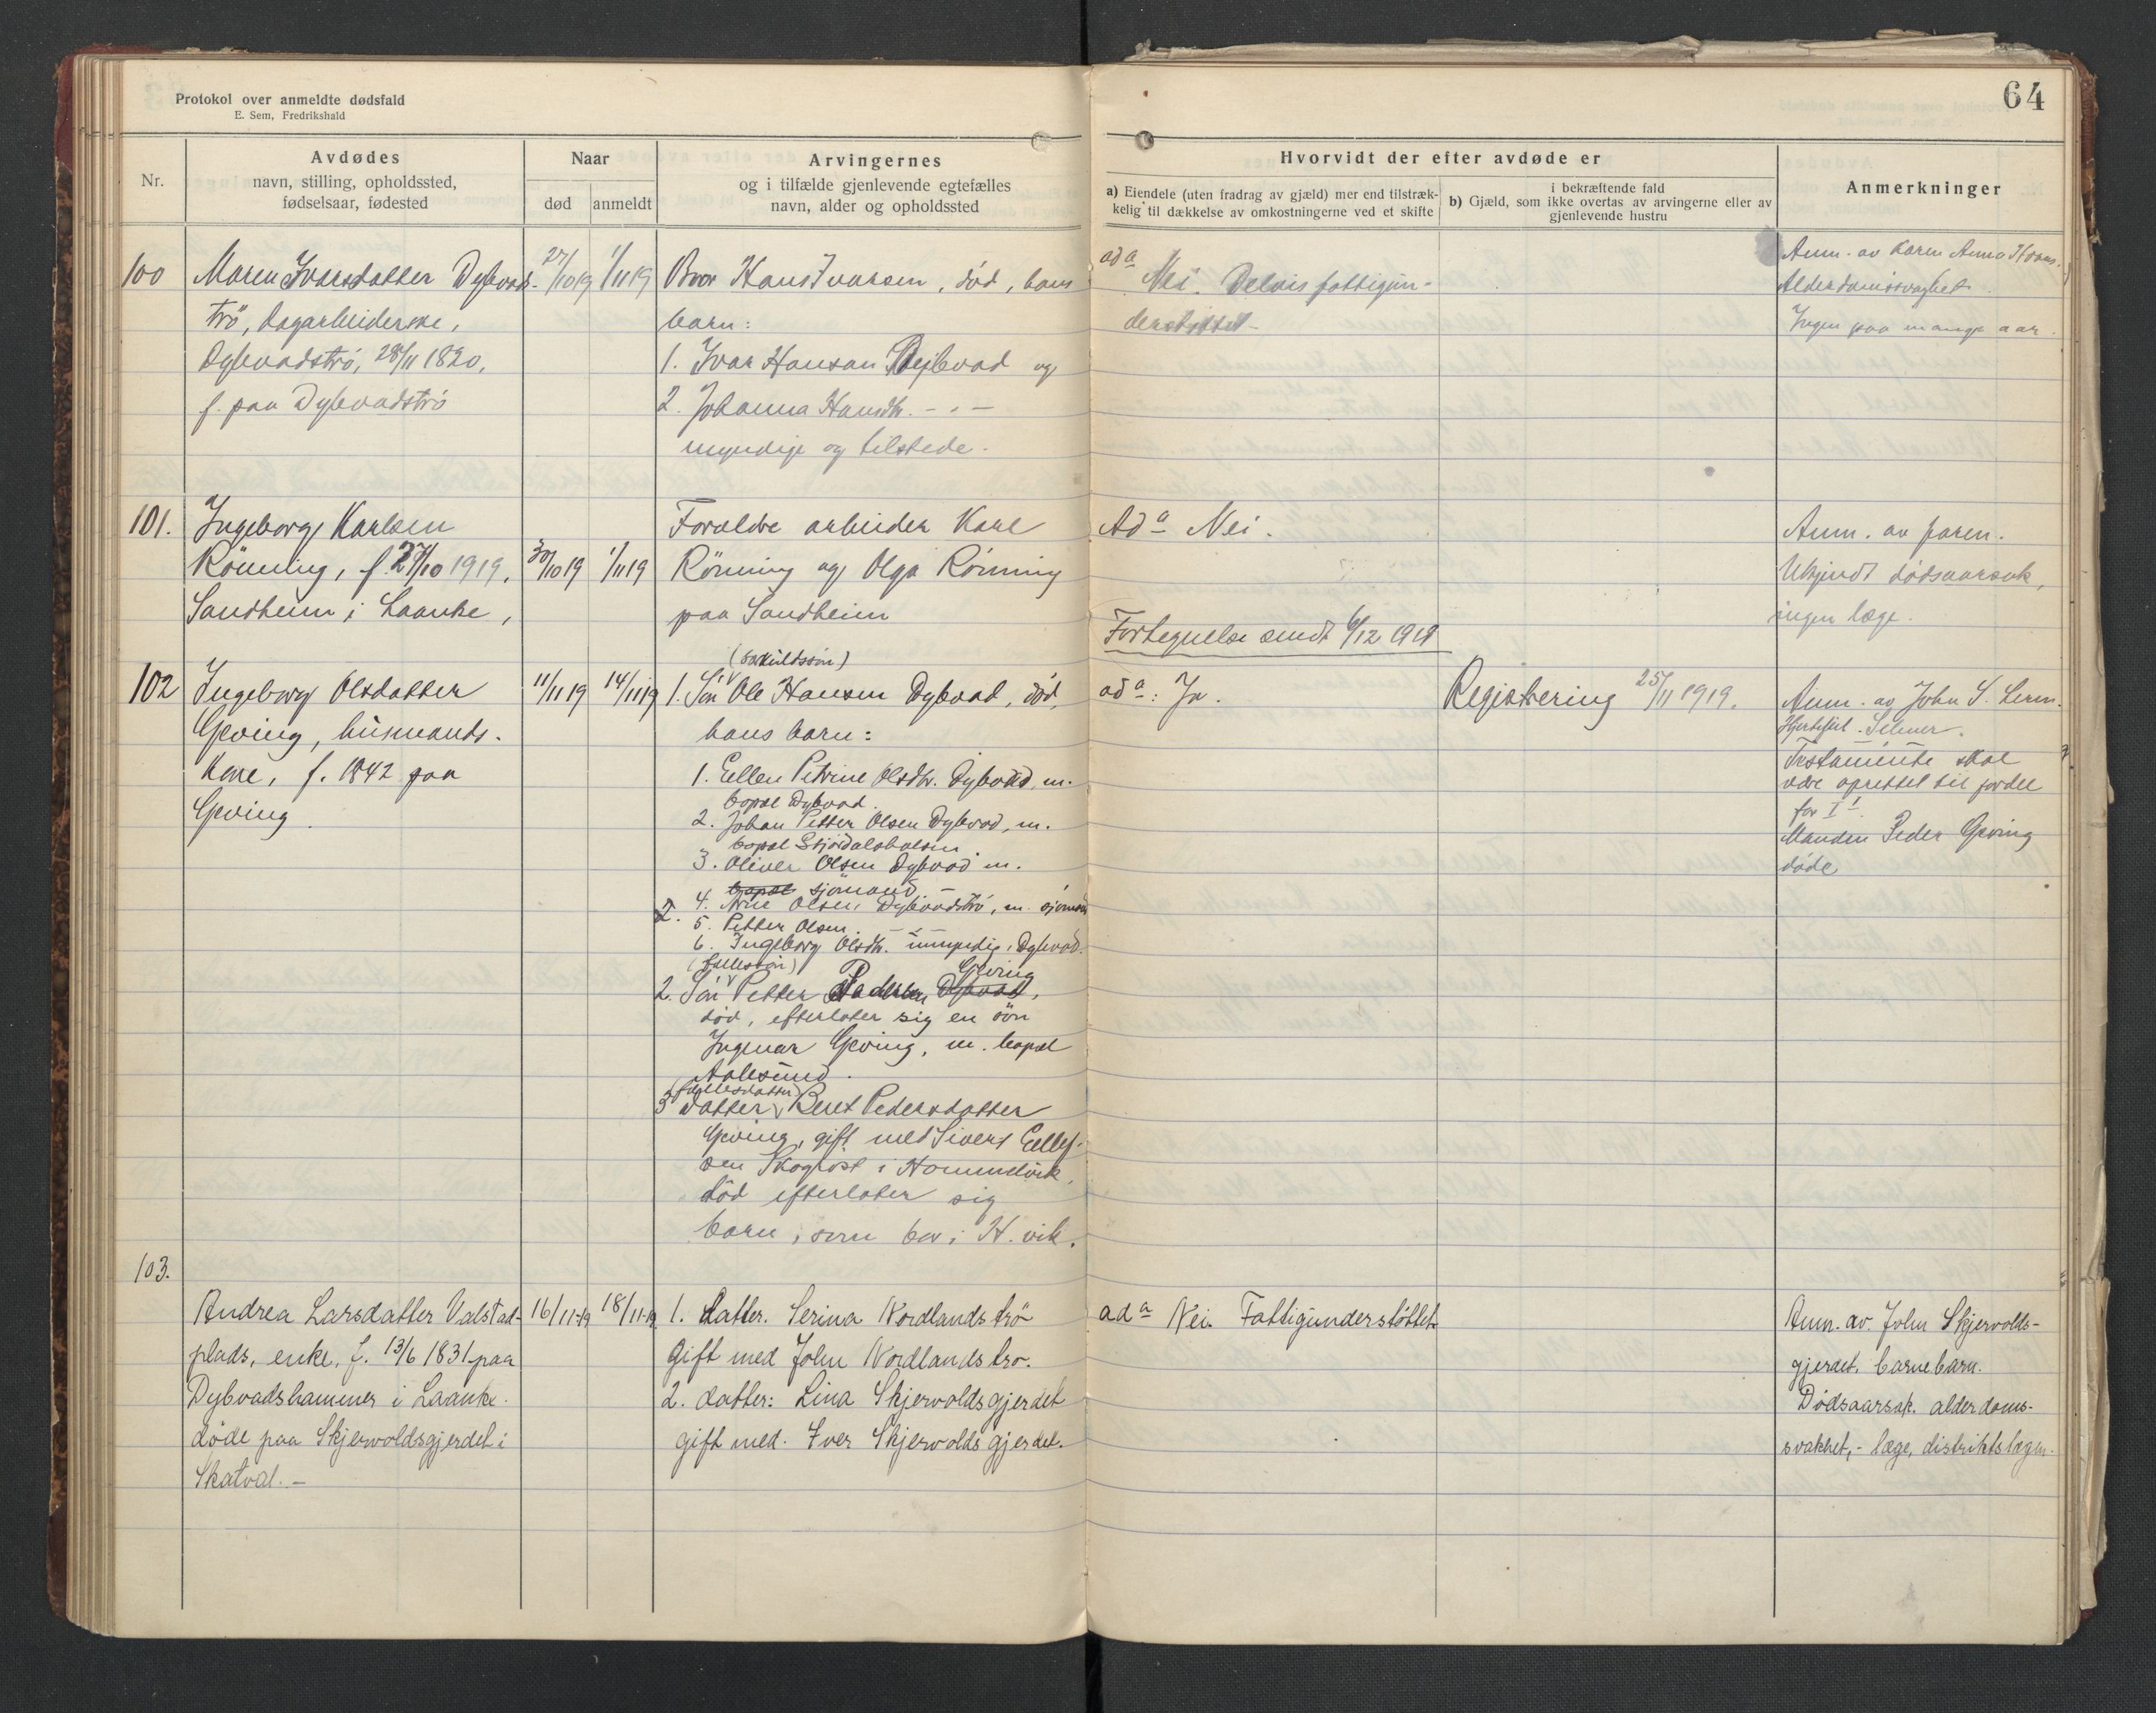 Protokol over anmeldte dødsfald
E. Sem, Fredrikshald
64
Nr.
Avdødes
navn, stilling, opholdssted,
fødselsaar, fødested
Naar
død
anmeldt
Arvingernes
og i tilfælde gjenlevende egtefælles
navn, alder og opholdssted
Hvorvidt der efter avdøde er
a) Eiendele (uten fradrag av gjæld) mer end tilstræk-
kelig til dækkelse av omkostningerne ved et skifte
i bekræftende fald
b) Gjæld, som ikke overtas av arvingerne eller av
gjenlevende hustru
Anmerkninger
100
Maren Ivarsdatter Dybvads-
trö, dagarbeiderske,
Dybvadströ, 28/11 1820,
f. paa Dybvadströ
27/10 19
1/11 19
Bror Hans Ivarsen, död, hans
barn:
1. Ivar Hansen Dybvad og
2. Johanna Hansdtr. - " -
myndige og tilstede.
ad a
Nei. Delvis fattigun-
derstøttet
Anm. av Karen Anna Hans.
Alderdomssvaghet.
Ingen paa mange aar.
101.
Ingeborg Karlsen
Rönning, f. 27/10 1919,
Sandheim i Laanke,
30/10 19
1/11 19
Forældre arbeider Karl
Rönning og Olga Rönning
paa Sandheim
Ad a Nei.
Anm. av faren.
Ukjendt dödsaarsak,
ingen læge.
Fortegnelse sendt 6/12 1919
102
Ingeborg Olsdatter
Geving, husmands-
kone, f. 1842 paa
Geving.
11/11 19
14/11 19
(særkuldssön)
1. Sön Ole Hansen Dybvad, död,
hans barn:
1. Ellen Petrine Olsdtr. Dybvad, m.
bopæl Dybvad.
2. Johan Petter Olsen Dybvad, m.
bopæl Stjördalshalsen
3. Oliver Olsen Dybvad m.
bopæl sjömand. -
4. Arne Olsen Dybvadströ, m. sjömand
2.
5. Petter Olsen. - " -
6. Ingeborg Olsdtr. umyndig, Dybvad.
(fællessön)
2. Sön Petter Pedersen Dybvad, Geving
död, efterlater sig en sön
Ingvar Geving, m. bopæl
Aalesund.
(fællesdatter)
3 Datter Beret Pedersdatter
Geving, gift med Sivert Ellef-
sen Skogröst i Hommelvik,
död efterlater sig
barn, som bor i H. vik.
ad a: Ja.
Registrering 25/11 1919.
Anm. av John S. Lerm.
Hjertefeil. Selmer.
Testamente skal
være oprettet til fordel
for I 1
Manden Peder Geving
döde
103.
Andrea Larsdatter Valstad-
plads, enke, f. 13/6 1831 paa
Dybvadshammer i Laanke.
döde paa Skjervoldsgjerdet i
Skatval. -
16/11-19
18/11-19
1. datter. Serina Nordlandströ
Gift med John Nordlandstro.
2. datter: Lina Skjervoldsgjerdet
gift med. Iver Skjervoldsgjerdet.
ad a Nei. Fattigunderstöttet.
Anm. av. John Skjervolds-
gjerdet, barnebarn.
Dödsaarsak. alderdoms-
svakhet, - læge, distriktslægen.